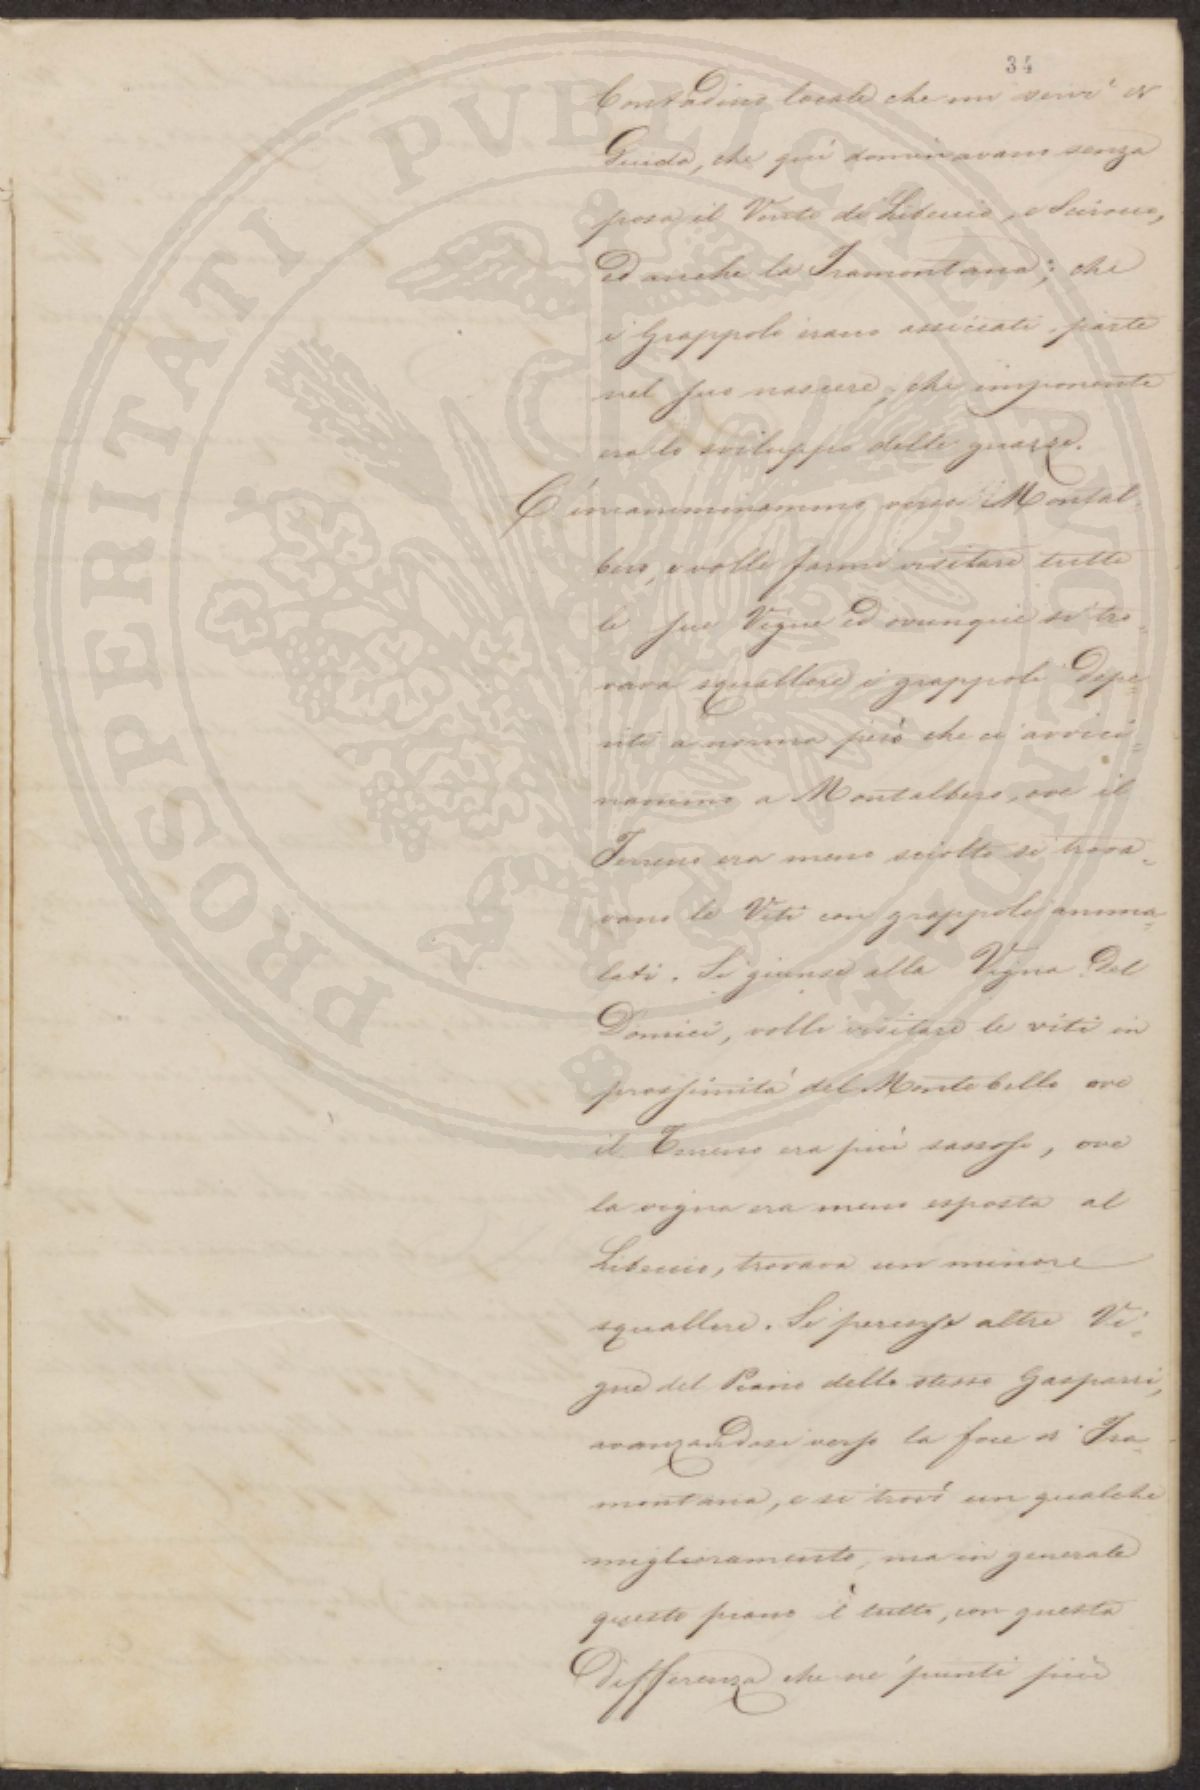 34
Contadino locale che mi servì di
Guida, che quì dominavano senza
posa il Vento di Libeccio, e Scirocco,
ed anche la Tramontana; che
i Grappoli erano assiccati, parte
nel suo nascere; che imponente
era lo sviluppo delle guazze.
C'incamminammo verso Montal-
bero, e volle farmi visitare tutte
le sue Vigne ed ovunque si tro-
vava squallore i grappoli depe-
riti a norma però che ci avvici-
nammo a Montalbero, ove il
Terreno era meno sciolto si trova-
vano le Viti con grappoli amma-
lati. Si giunse alla Vigna del
Domici, volli visitare le viti in
prossimità del Montebello ove
il Terreno era più sassoso, ove
la vigna era meno esposta al
Libeccio, trovava un minore
squallore. Si percorse altre Vi-
gne del Piano dello stesso Gasparri,
avanzandosi verso la foce di Tra-
montana, e si trovò un qualche
miglioramento, ma in generale
questo piano è tutto, con questa
differenza che ne' punti più
PROSPERITATI PVBLICAE AVGENDAE